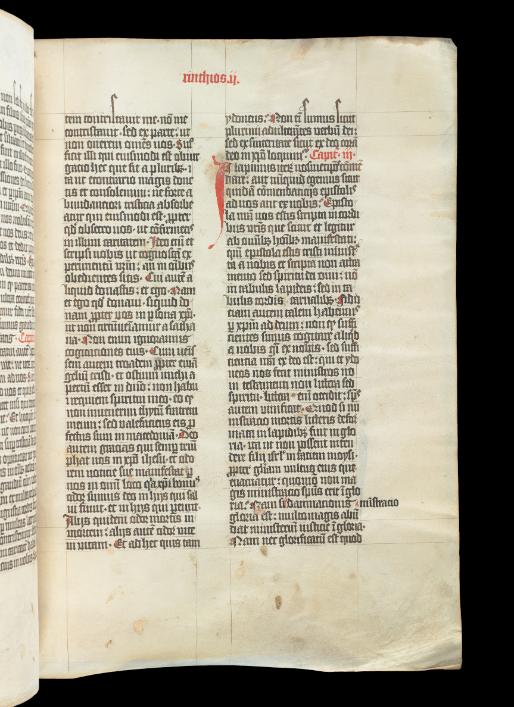 rinthios.ij.
rem contristauit me. nō me
contristauit. sed ex parte: ut
non onerem omēs uos. Suf
ficit illi qui eiusmodi est obiur
gatio hec que fit a pluribꝫ: i
ta ut econtrario magis done
tis et consolemini: ne forte a
bundantiori tristicia absorbe
atur qui eiusmodi est. ꝓpter
qđ obsecro uos. ut cōfirmetis
in illum caritatem. Ideo em̄ et
scripsi uobis ut cognoscā ex
perimentū vrm̄: an in oībꝫ
obedientes sitis. Cui autē a
liquid donastis: et ego. Nam
et ego qđ donaui. siquid do
naui ꝓpter uos in ꝑsona xp̄i.
ut non circūueniamur a satha
na. Non enim ignoramus
cogitationes eius. Cum uenis
sem autem troadem ꝓpter euā
gelium cristi. et ostium michi a
pertū esset in dn̄o: non habu
i requiem spiritui meo. eo qđ
non inuenerim thytum fratrem
meum: sed ualefaciens eis ꝓ
fectus sum in macedoniā. Deo
autem gracias qui semꝑ trium
phat nos in xp̄o ihesu: et odo
rem noticie sue manifestat ꝑ
nos in om̄i loco. quia xp̄i bonus
odor sumus deo in hijs qui sal
ui fiunt. et in hijs qui pereunt.
Alijs quidem odor mortis in
mortem: alijs autē odor uite
in uitam. Et ad hec quis tam
ydoneus. Non em̄ sumus sicut
plurimi adulterantes uerbū dei:
sed ex sinceritate sicut ex deo corā
deo in xp̄o loqmur. Capit̄. iij.
Incipimus iterū nosmetipsos cōmē
dare: aut nūquid egemus sicut
quidā cōmendaticijs epistolis
ad uos aut ex uobis. Episto
la nrā uos estis scripta in cordi
bus vris que scitur et legitur
ab omībꝫ hoībꝫ: manifestati:
qm̄ epistola estis cristi ministra
ta a nobis et scripta non atra
mento sed spiritu dei uiui: nō
in tabulis lapideis: sed in ta
bulis cordis carnalibꝫ. Fidu
ciam autem talem habemus
ꝑ xp̄um ad deum: non qđ suffi
cientes simus cogitare aliqđ
a nobis quasi ex nobis. sed suffi
cientia nrā ex deo est: qui et ydo
neos nos fecit ministros no
ui testamenti non littera sed
spiritu. littera em̄ occidit: spūs
autem uiuificat. Quod si mi
nistratio mortis litteris defor
mata in lapidibꝫ fuit in glo
ria. ita ut non possent inten
dere filij isrl̄ in faciem moysi.
ꝓpter gloriam uultus eius que
euacuatur: quomō non ma
gis ministracio spūs erit ī glo
ria. Nam si dampnationis ministracio
gloria est: multo magis abū
dat ministeriū iusticie ī gloria.
Nam nec glorificatū est quod